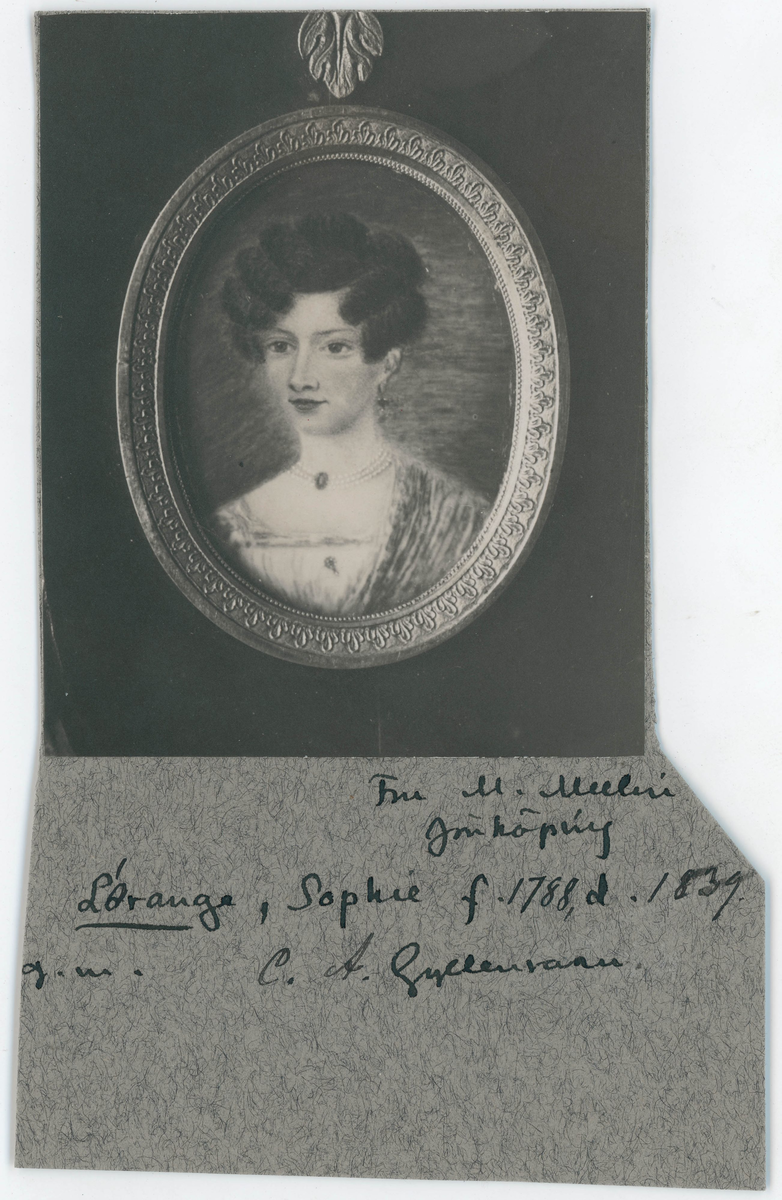 Fru M. Mellin
Jönköping
L'Orange, Sophie f. 1788, d. 1839.
g. m. C. A. Gyllenram.